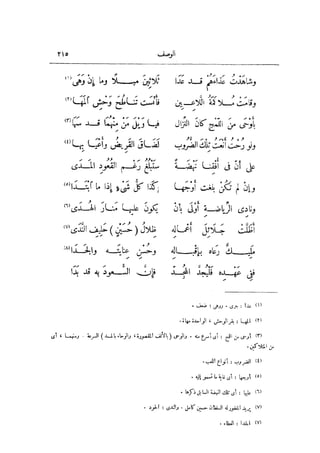 الوصف ٢١٥
وشاهدت عداءهم قد عدا ثلاثين ميلا وما إن وهى (١)
وقامت ملاكمة اللاعبين فأمست تناطح وحش المها (٢)
بأوحى من اللمح كان النزال فيا ويل من منهما قد سها (٣)
ولو رحت أنعت تلك الضروب لضاق القريض وأعيا بها (٤)
على أن في أفقنا نهضة ستبلغ رغم القعود المدى
وإن لم تكن بلغت أوجها كذا كل شيء إذا ما ابتدا (٥)
ونادى الرياضة أولى بأن يكون عليها منار الهدى (٦)
أظلت جلائل أعماله ظلال (حسين) حليف الندى (٧)
مليك رعاه بإقباله وحسن عنايته والجدا (٨)
ففي عهده فليجد المجد فإن السعود به قد بدا
(١) عدا : جرى . ووهى : ضعف .
(٢) المها : بقر الوحش ، الواحدة مهاة .
(٣) أوحى من اللمح : أى أسرع منه . والوحى (بالألف المقصورة ، والوحاء بالمد) السرعة . ومنهما ، أى
من المتلاكمين .
(٤) الضروب : أنواع اللعب .
(٥) أوجها : أى غاية ما تسمو إليه .
(٦) عليها : أى تلك النهضة السابق ذكرها .
(٧) يريد المغفور له السلطان حسين كامل . والندى : الجود .
(٧) الجدا : العطاء .